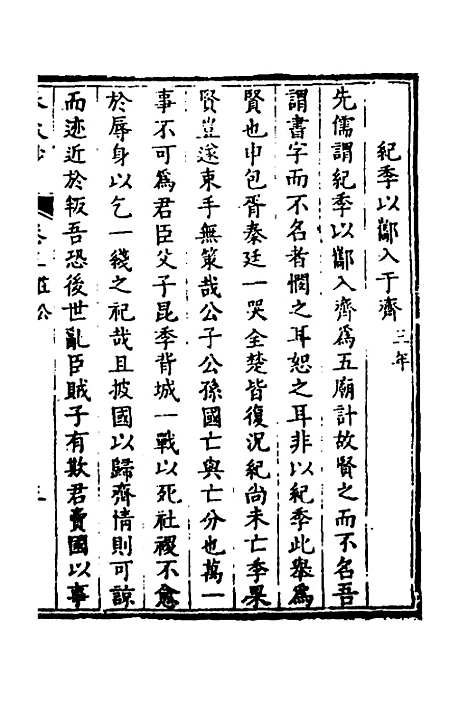 紀季以酅入于齊三年
先儒謂紀季以酅入齊爲五廟計故賢之而不名吾
謂書字而不名者憫之耳恕之耳非以紀季此舉爲
賢也申包胥秦廷一哭全楚皆復況紀尚未亡季果
賢豈遂束手無策哉公子公孫國亡與亡分也萬一
事不可爲君臣父子昆季背城一戰以死社稷不愈
於辱身以乞一綫之祀哉且披國以歸齊情則可諒
而迹近於叛吾恐後世亂臣賊子有欺君賣國以事